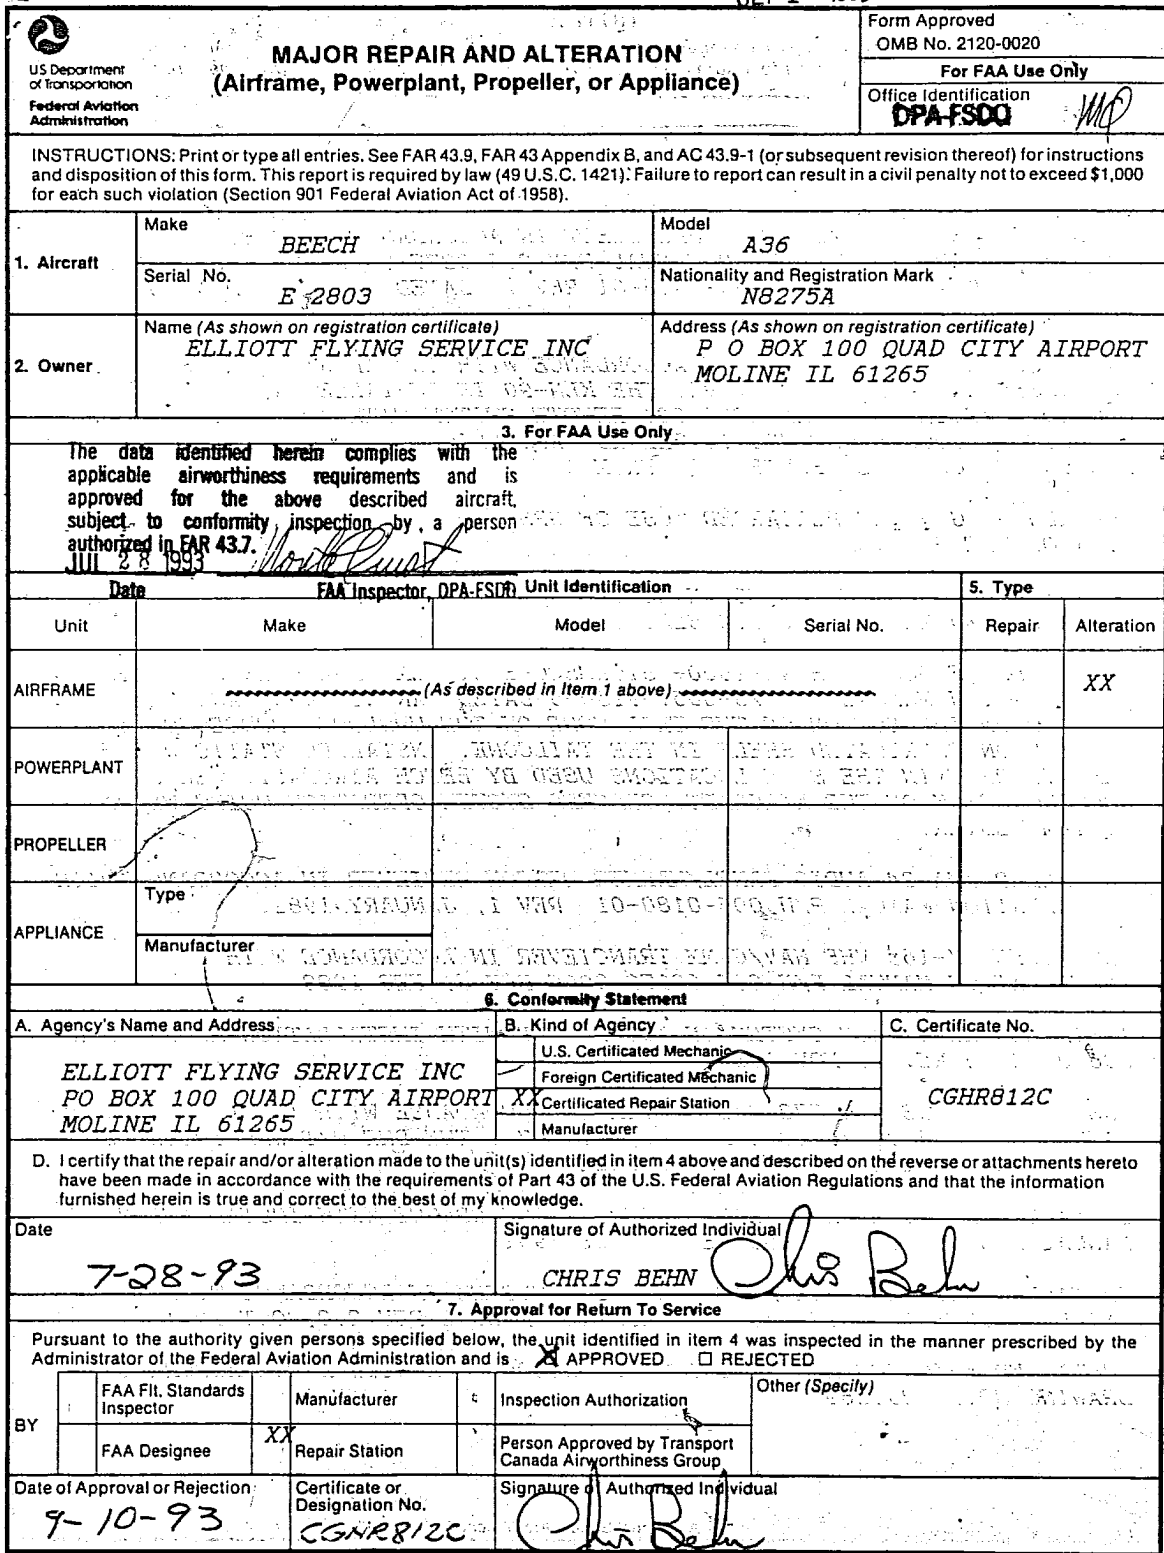 US Department
of Transportation
Federal Aviation
Administration
MAJOR REPAIR AND ALTERATION
(Airframe, Powerplant, Propeller, or Appliance)
Form Approved
OMB No. 2120-0020
For FAA Use Only
Office Identification
DPA-FSDO
INSTRUCTIONS: Print or type all entries. See FAR 43.9, FAR 43 Appendix B, and AC 43.9-1 (or subsequent revision thereof) for instructions
and disposition of this form. This report is required by law (49 U.S.C. 1421). Failure to report can result in a civil penalty not to exceed $1,000
for each such violation (Section 901 Federal Aviation Act of 1958).
1. Aircraft
Make
BEECH
Model
A36
Serial No.
E 2803
Nationality and Registration Mark
N8275A
2. Owner
Name (As shown on registration certificate)
ELLIOTT FLYING SERVICE INC
Address (As shown on registration certificate)
P O BOX 100 QUAD CITY AIRPORT
MOLINE IL 61265
3. For FAA Use Only
The data identified herein complies with the
applicable airworthiness requirements and is
approved for the above described aircraft,
subject to conformity inspection by a person
authorized in FAR 43.7.
JUL 28 1993
Date FAA Inspector, DPA-FSDO
Unit Identification
5. Type
Unit Make Model Serial No. Repair Alteration
AIRFRAME (As described in Item 1 above) XX
POWERPLANT
PROPELLER
APPLIANCE
Type
Manufacturer
6. Conformity Statement
A. Agency's Name and Address
B. Kind of Agency
C. Certificate No.
ELLIOTT FLYING SERVICE INC
PO BOX 100 QUAD CITY AIRPORT
MOLINE IL 61265
U.S. Certificated Mechanic
Foreign Certificated Mechanic
XX Certificated Repair Station
Manufacturer
CGHR812C
D. I certify that the repair and/or alteration made to the unit(s) identified in item 4 above and described on the reverse or attachments hereto
have been made in accordance with the requirements of Part 43 of the U.S. Federal Aviation Regulations and that the information
furnished herein is true and correct to the best of my knowledge.
Date
7-28-93
Signature of Authorized Individual
CHRIS BEHN Chris Behn
7. Approval for Return To Service
Pursuant to the authority given persons specified below, the unit identified in item 4 was inspected in the manner prescribed by the
Administrator of the Federal Aviation Administration and is X APPROVED ☐ REJECTED
BY
FAA Flt. Standards
Inspector
Manufacturer
Inspection Authorization
Other (Specify)
FAA Designee
XX Repair Station
Person Approved by Transport
Canada Airworthiness Group
Date of Approval or Rejection
9-10-93
Certificate or
Designation No.
CGNR812C
Signature of Authorized Individual
Chris Behn